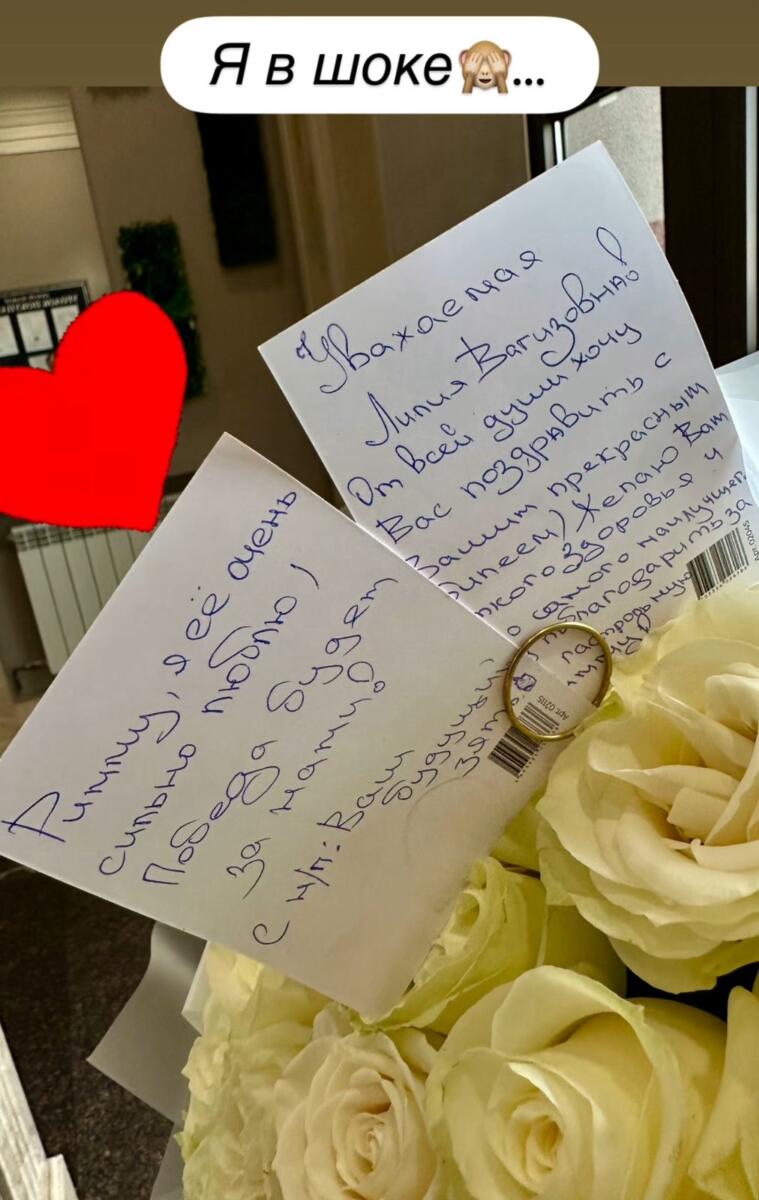 Я в шоке🙈...
Уважаемая
Лилия Вагизовна!
От всей души хочу
Вас поздравить с
Вашим прекрасным
Желаю Вам
здоровья и
самого наилучшего
за
Арт. 02045
Римму, я её очень
сильно люблю!
Победа будет
за нами!
С н/п: Ваш
будущий
зять